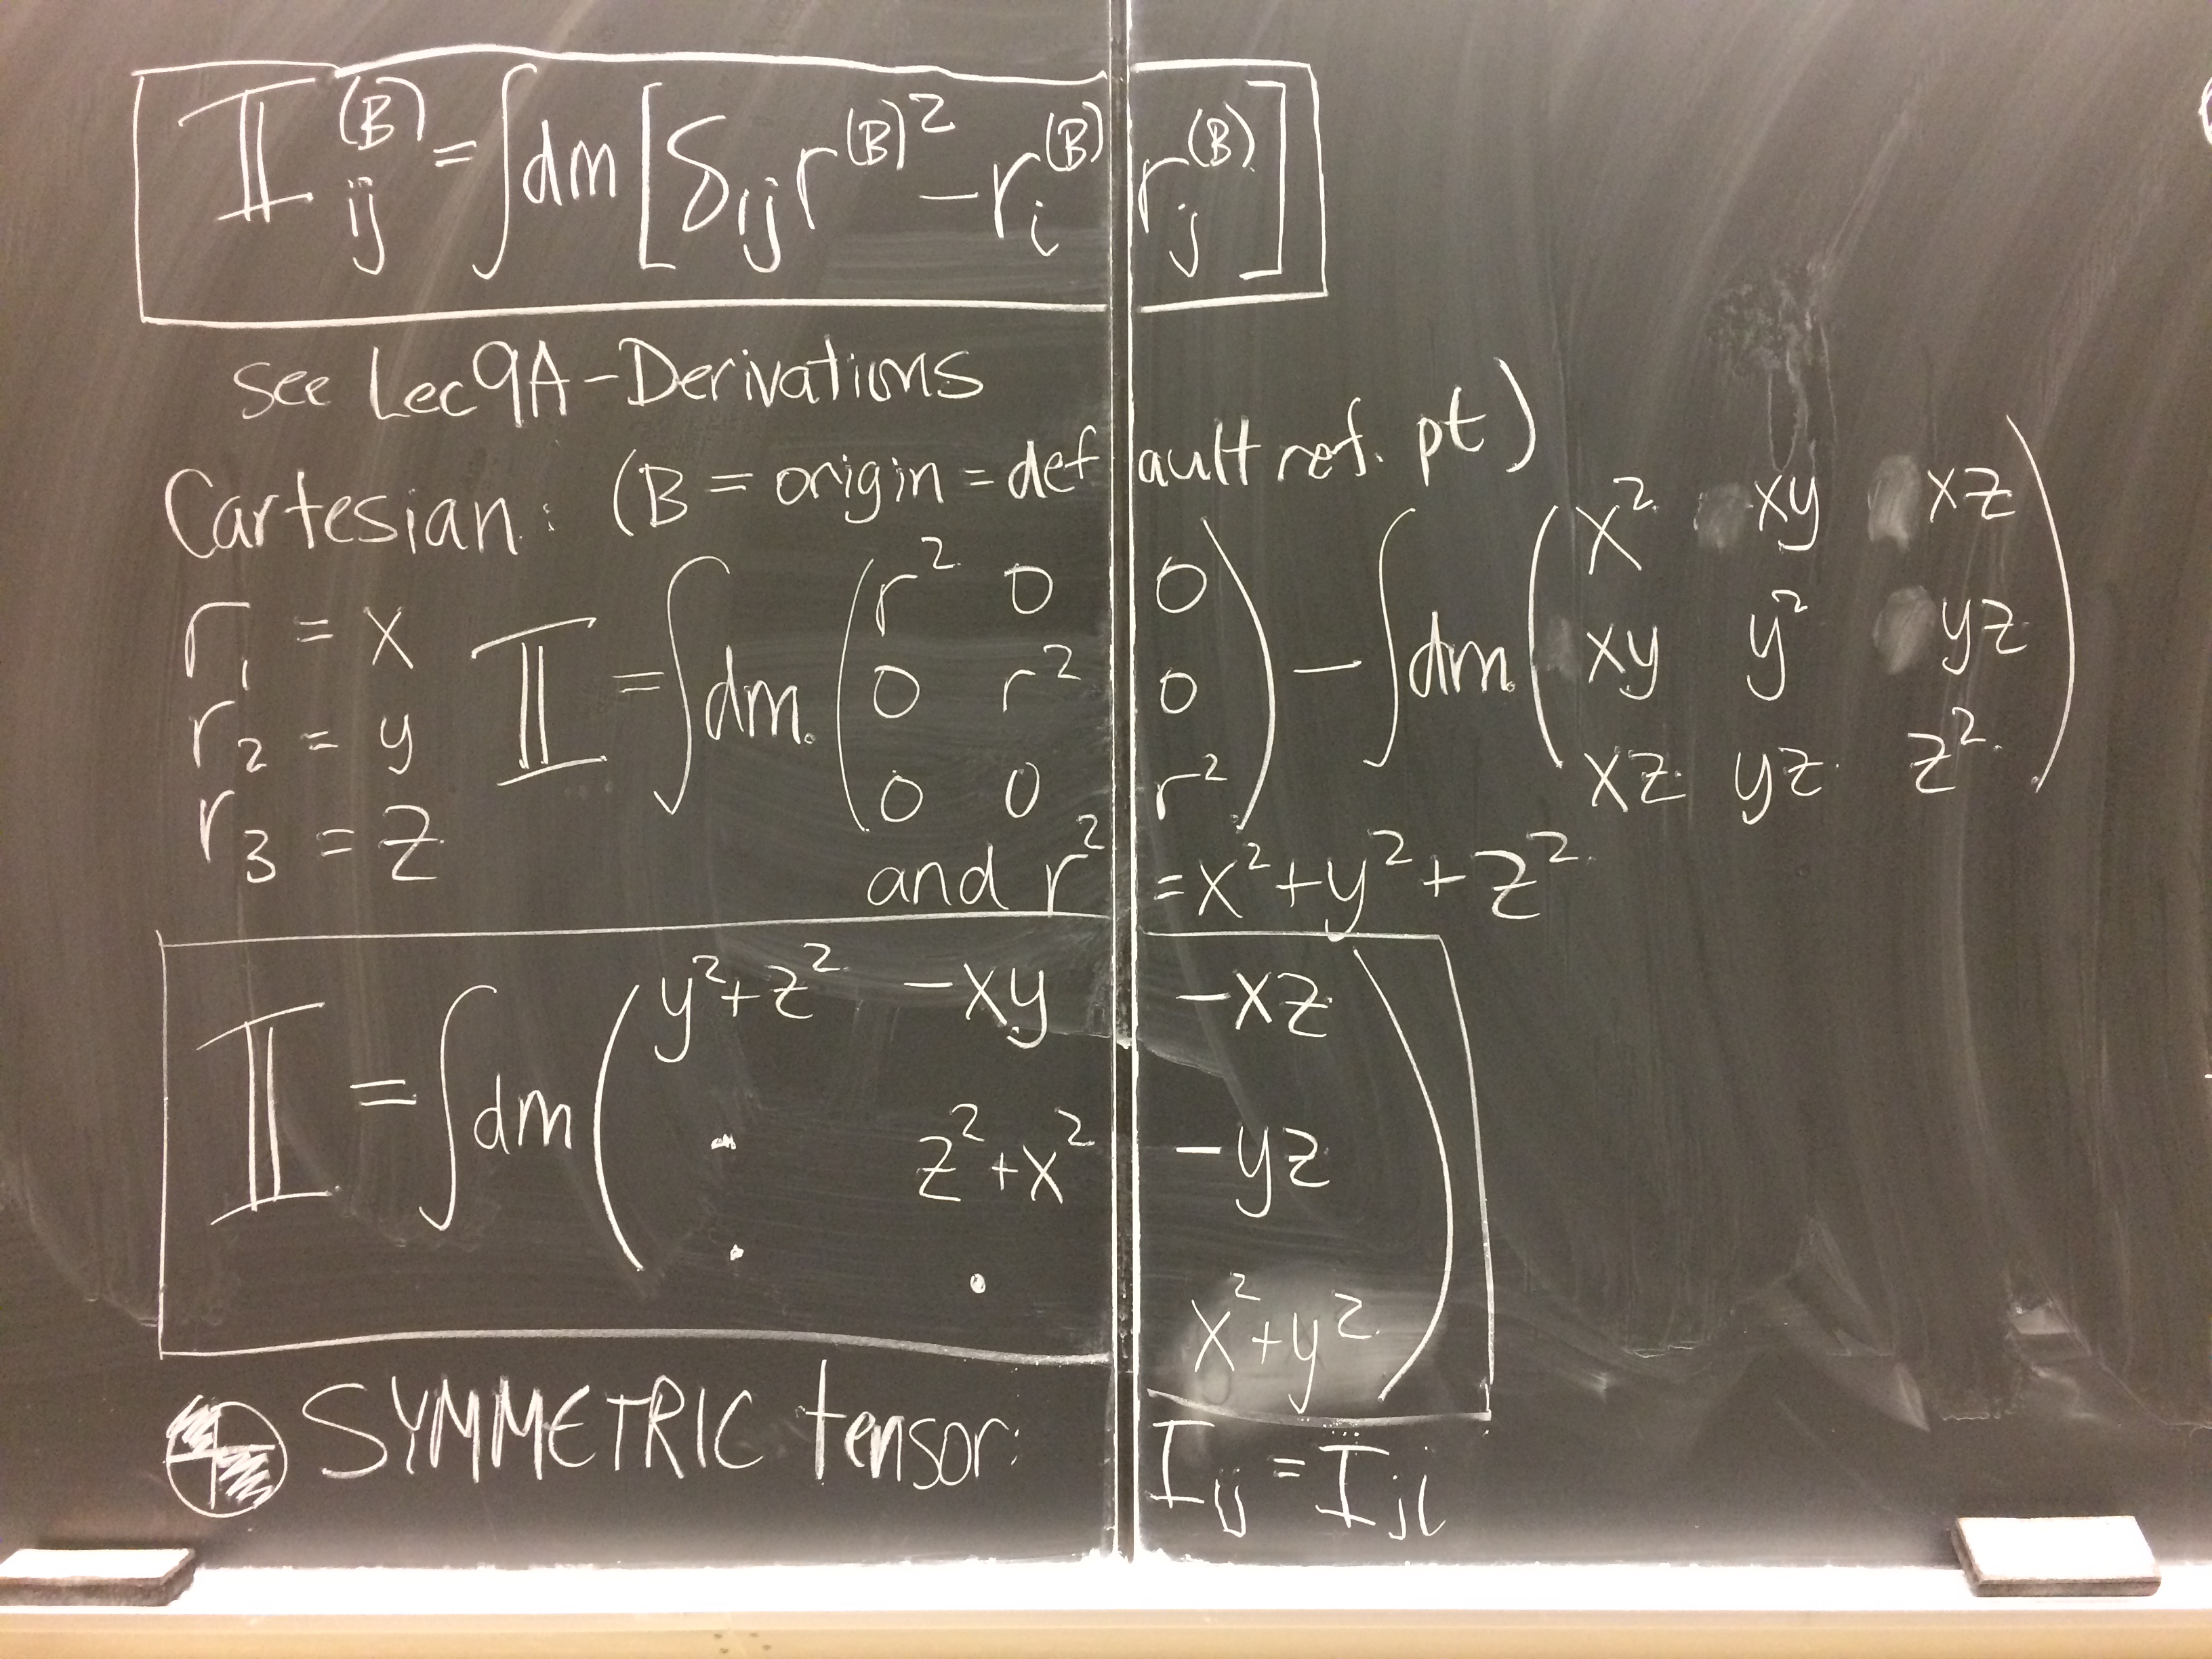 𝕀ᵢⱼ⁽ᴮ⁾ = ∫dm [δᵢⱼ r⁽ᴮ⁾² − rᵢ⁽ᴮ⁾ rⱼ⁽ᴮ⁾]
see Lec9A-Derivations
Cartesian: (B = origin = default ref. pt)
r₁ = x
r₂ = y
r₃ = z
𝕀 = ∫dm (r² 0 0 ; 0 r² 0 ; 0 0 r²) − ∫dm (x² xy xz ; xy y² yz ; xz yz z²)
and r² = x² + y² + z²
𝕀 = ∫dm (y²+z² −xy −xz ; · z²+x² −yz ; · · x²+y²)
SYMMETRIC tensor: Iᵢⱼ = Iⱼᵢ